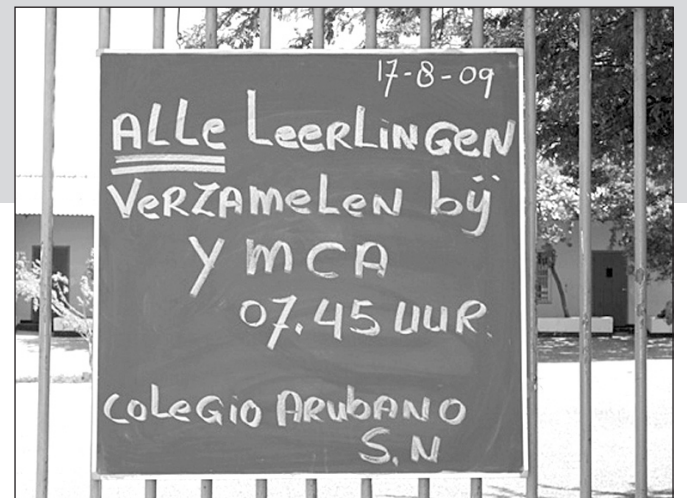 17-8-09
ALLe LeeRLiNGeN
VeRZAmeLeN bij
YMCA
07.45 UUR.
COLeGiO ARUbANO
S.N